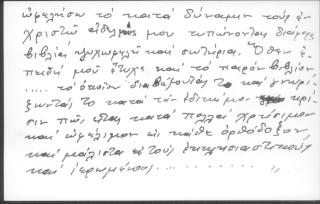 ὠφελήσω τὸ κατὰ δύναμιν τοὺς ἐν
Χριστῷ ἀδελφούς μου τυπώνοντας διάφορα
βιβλία ψυχωφελῆ καὶ σωτήρια. Ὅθεν ἐ-
πειδή μοῦ ἔτυχε καὶ τὸ παρὸν βιβλίον
..... τὸ ὁποῖον διαβάζοντάς το καὶ γνωρί-
ζωντάς το κατὰ τὴν ἐδικήν μου κρί-
σιν πῶς εἶναι κατὰ πολλὰ χρήσιμον
καὶ ὠφέλιμον εἰς κάθε ὀρθόδοξον,
καὶ μάλιστα εἰς τοὺς ἐκκλησιαστικοὺς
καὶ ἱερωμένους ...........,,